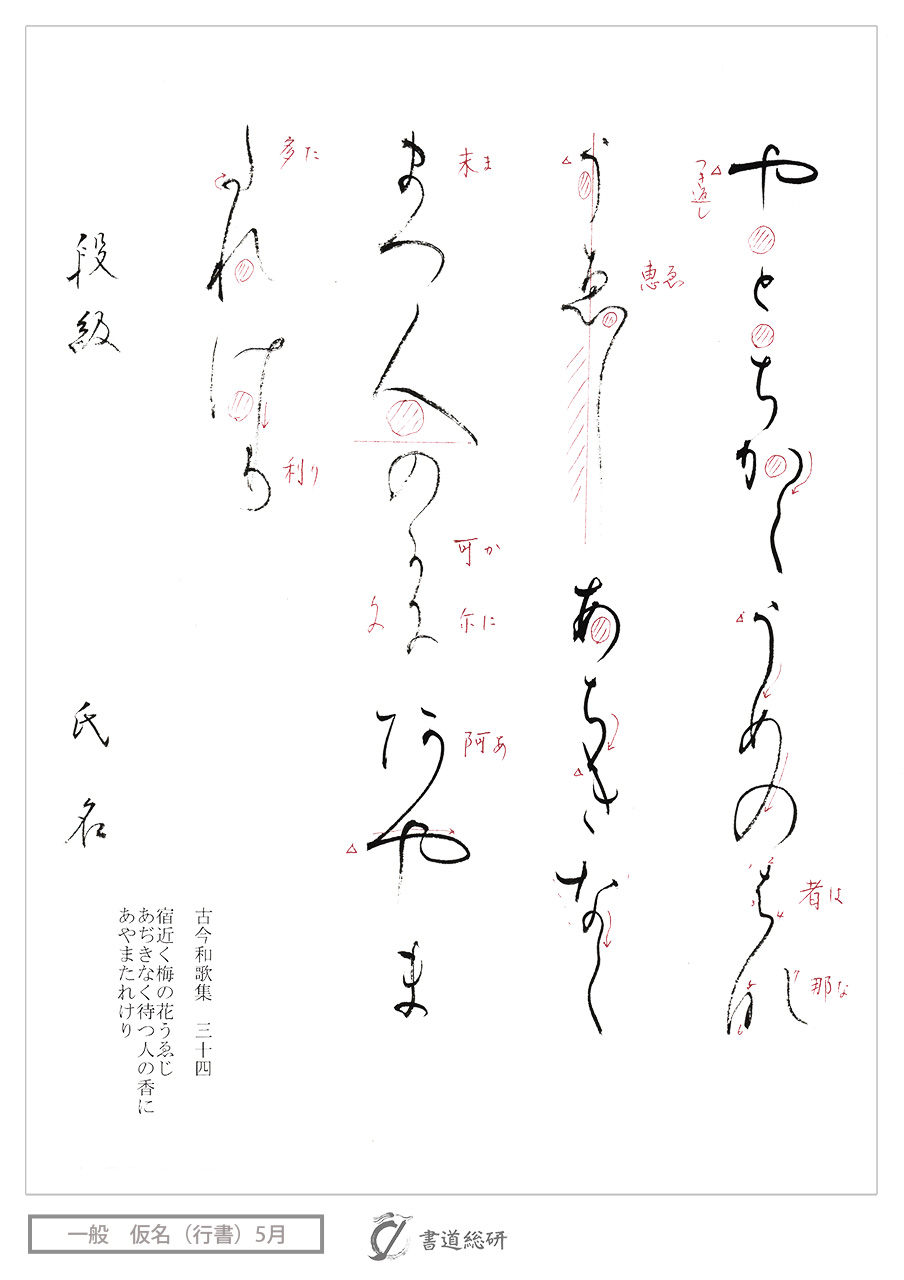 やとちかくうめのはな
うゑしあちきなく
まつ人のかにあやま
たれけり
段級 氏名
つき返し
者は
那な
恵ゑ
末ま
可か
尓に
阿あ
多た
利り
古今和歌集 三十四
宿近く梅の花うゑじ
あぢきなく待つ人の香に
あやまたれけり
一般 仮名（行書）5月
書道総研